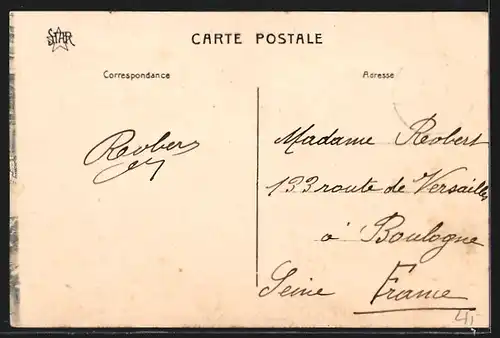 STAR
CARTE POSTALE
Correspondance
Adresse
Madame Robert
133 route de Versailles
à Boulogne
Seine France